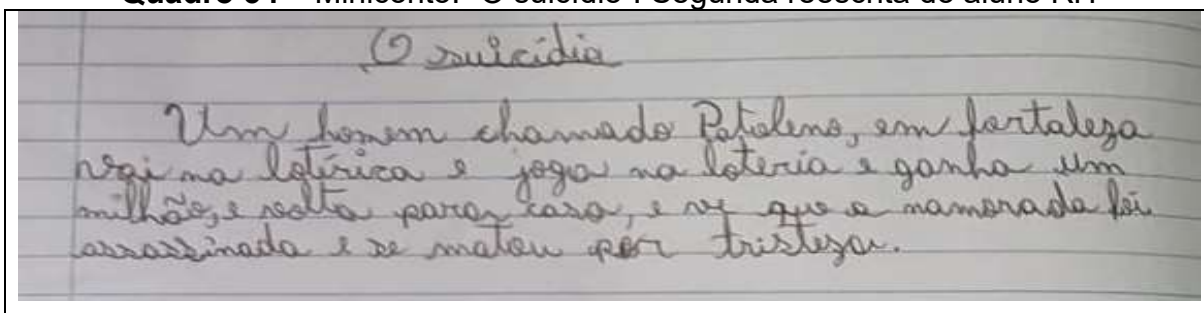 Miniconto: "O suicídio". Segunda reescrita do aluno RH
O suicídio
Um homem chamado Patoleno, em fortaleza
vai na lotírica e joga na loteria e ganha um
milhão, e volta para casa, e vê que a namorada foi
assassinada e se matou por tristeza.